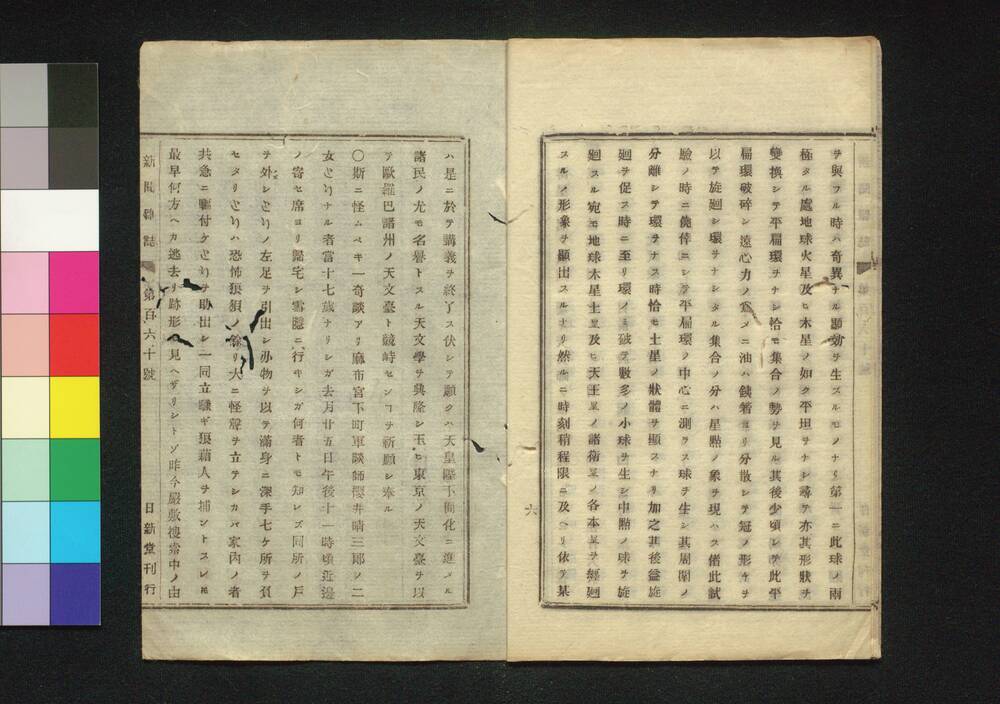 ヲ與フル時ハ奇異ナル顯効ヲ生ズルモノナリ第一ニ此球ノ兩
極タル處地球火星及ヒ木星ノ如ク平坦ヲナシ尋テ亦其形狀ヲ
變換シテ平扁環ヲナシ恰モ集合ノ勢ヲ見ル其後少頃シテ此平
扁環破碎シ遠心力ノ爲メニ油ハ鐵箸ヨリ分散シテ冠ノ形ヲ
以テ旋廻シ環ヲナシタル集合ノ分ハ星點ノ象ヲ現ハス偖此試
驗ノ時ニ僥倖ニシテ平扁環ノ中心ニ測ラス球ヲ生シ其周圍ノ
分離シテ環ヲナス時恰モ土星ノ狀體ヲ顯スナリ加之其後益旋
廻ヲ促ス時ニ至リ環ノミ破テ數多ノ小球ヲ生シ中點ノ球ヲ旋
廻スル宛モ地球木星土星及ヒ天王星ノ諸衛星ノ各本星ヲ經廻
スルノ形象ヲ顯出スルナリ然ルニ時刻精程限ニ及ヘリ依テ某
六
ハ是ニ於テ講義ヲ終了ス伏シテ願クハ天皇陛下開化ニ進メル
諸民ノ尤モ名譽トスル天文學ヲ興隆シ玉ヒ東京ノ天文臺ヲ以
テ歐羅巴諸州ノ天文臺ト競峙センコヲ祈願シ奉ル
〇斯ニ怪ムベキ一奇談アリ麻布宮下町軍談師櫻井晴三郎ノ二
女とりナル者當十七歲ナリシガ去月廿五日午後十一時頃近邊
ノ寄セ席ヨリ歸宅シ雪隱ニ行キシガ何者トモ知レズ同所ノ戶
ヲ外シとりノ左足ヲ引出シ刃物ヲ以テ滿身ニ深手七ケ所ヲ負
セタリとりハ恐怖狼狽ノ餘リ大ニ怪聲ヲ立テシカバ家內ノ者
共急ニ驅付ケとりヲ助出シ一同立騷ギ狼藉人ヲ捕ントスレ𪜈
最早何方ヘカ逃去リ跡形モ見ヘザリシトゾ昨今嚴敷捜索中ノ由
新聞雜誌 第百六十號 日新堂刊行